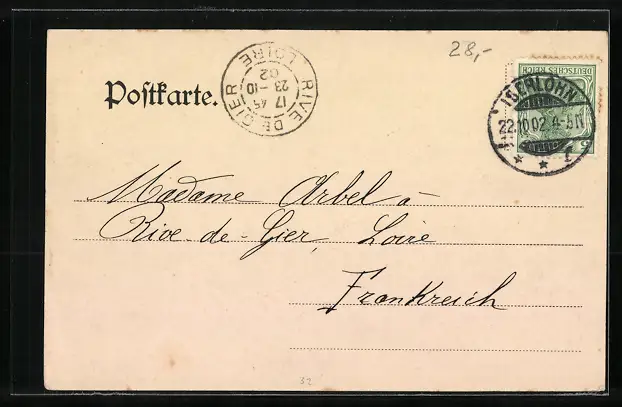 28,-
Postkarte.
RIVE DE GIER
17 45
23 -10
02
LOIRE
DEUTSCHES REICH
5
ISERLOHN
22.10.02.4-5N
* * 1
Madame Arbel à
Rive-de-Gier, Loire
Frankreich
32